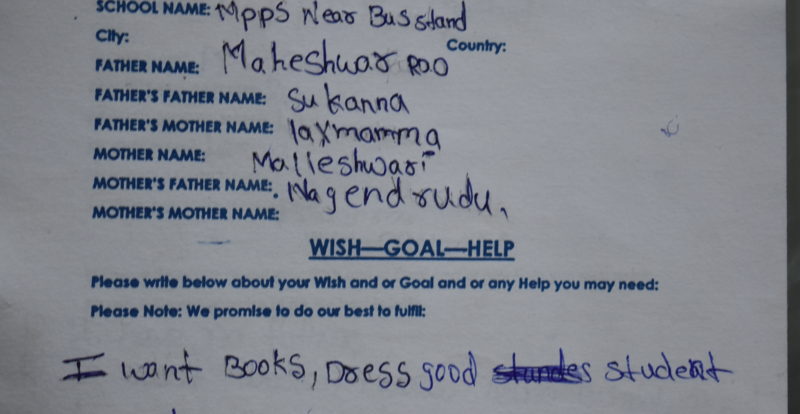 SCHOOL NAME: Mpps Near Bus stand
City: Country:
FATHER NAME: Maheshwar RAO
FATHER'S FATHER NAME: Sukanna
FATHER'S MOTHER NAME: laxmamma
MOTHER NAME: Malleshwari
MOTHER'S FATHER NAME: Nagendrudu,
MOTHER'S MOTHER NAME:
WISH—GOAL—HELP
Please write below about your Wish and or Goal and or any Help you may need:
Please Note: We promise to do our best to fulfil:
I want Books, Dress good student